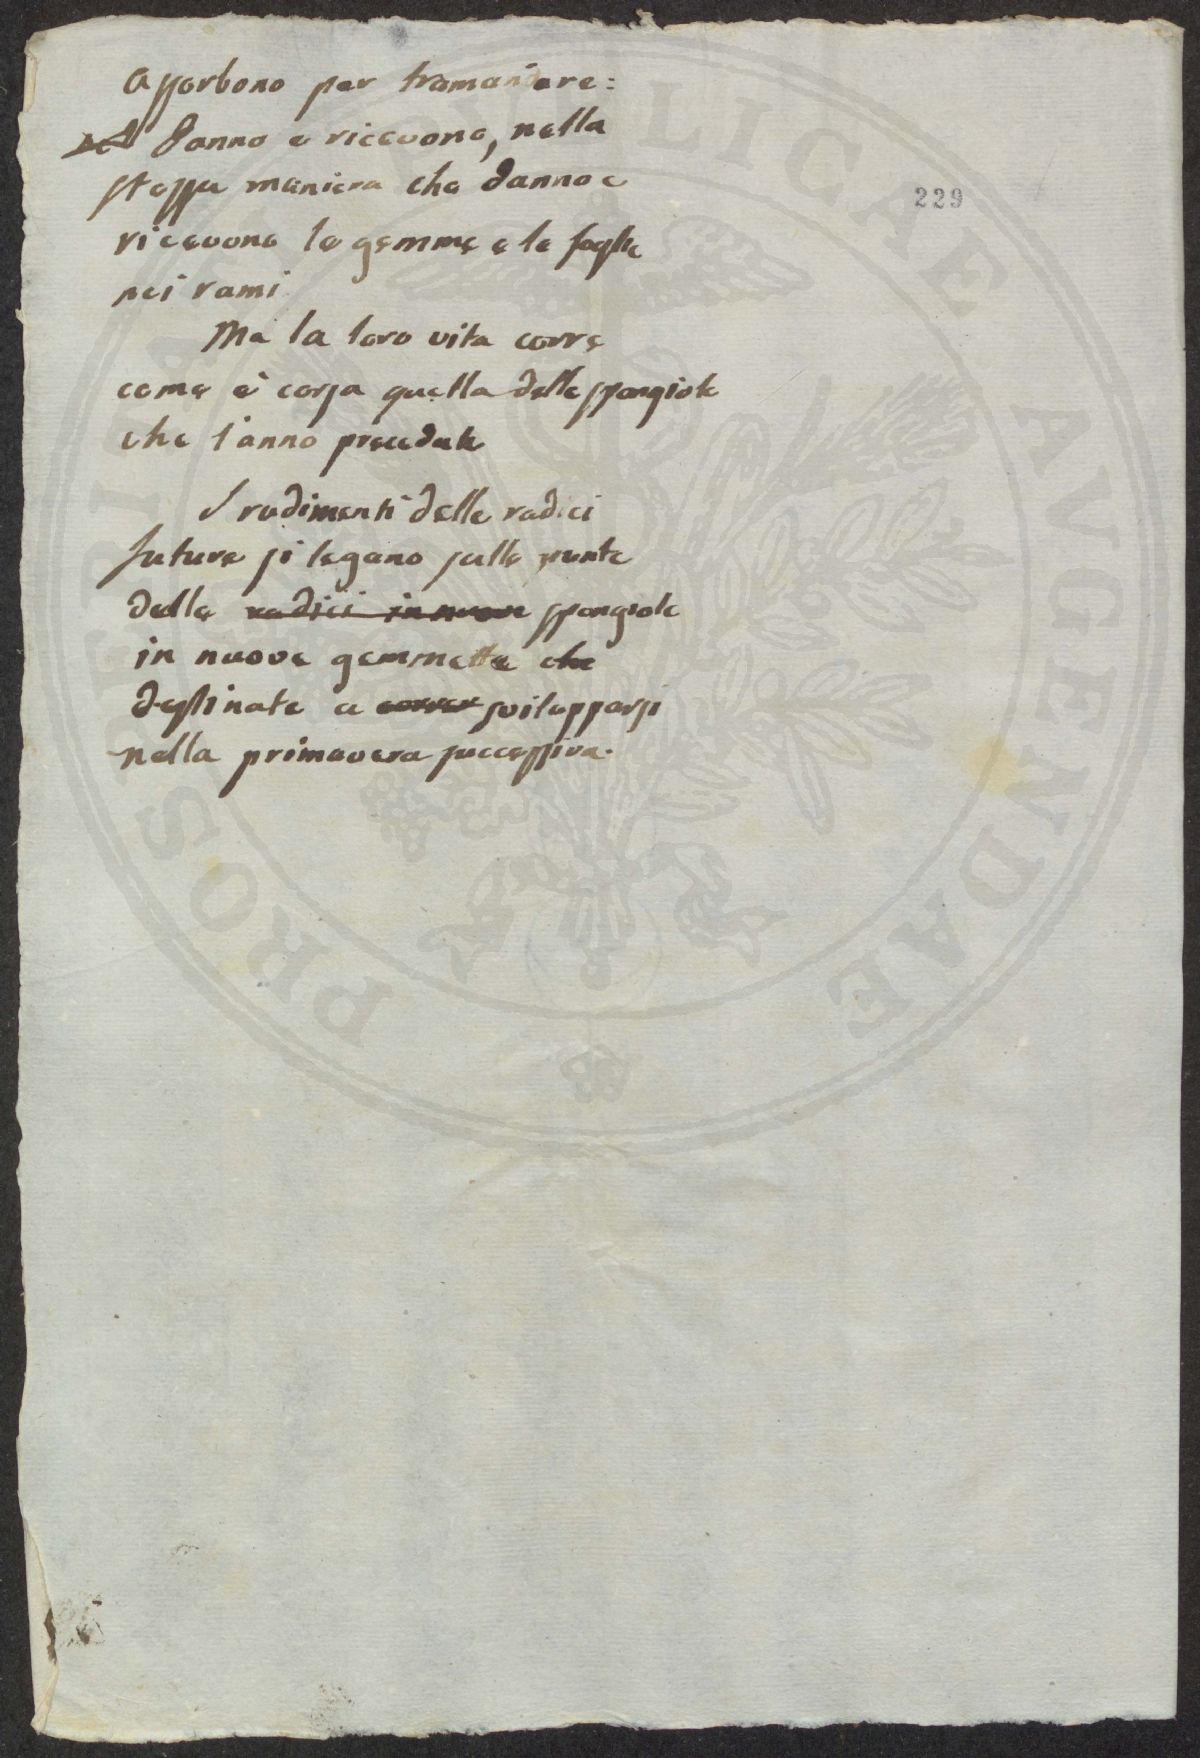 assorbono per tramandare:
danno e ricevono, nella
stessa maniera che danno e
ricevono le gemme e le foglie
nei rami
229
Ma la loro vita corre
come è corsa quella delle spongiole
che l'anno precedute
I rudimenti delle radici
future si legano sulle punte
delle radici in nuove spongiole
in nuove gemmette che
destinate a correr svilupparsi
nella primavera successiva.
PROSPERITATI PUBLICAE AVGENDAE